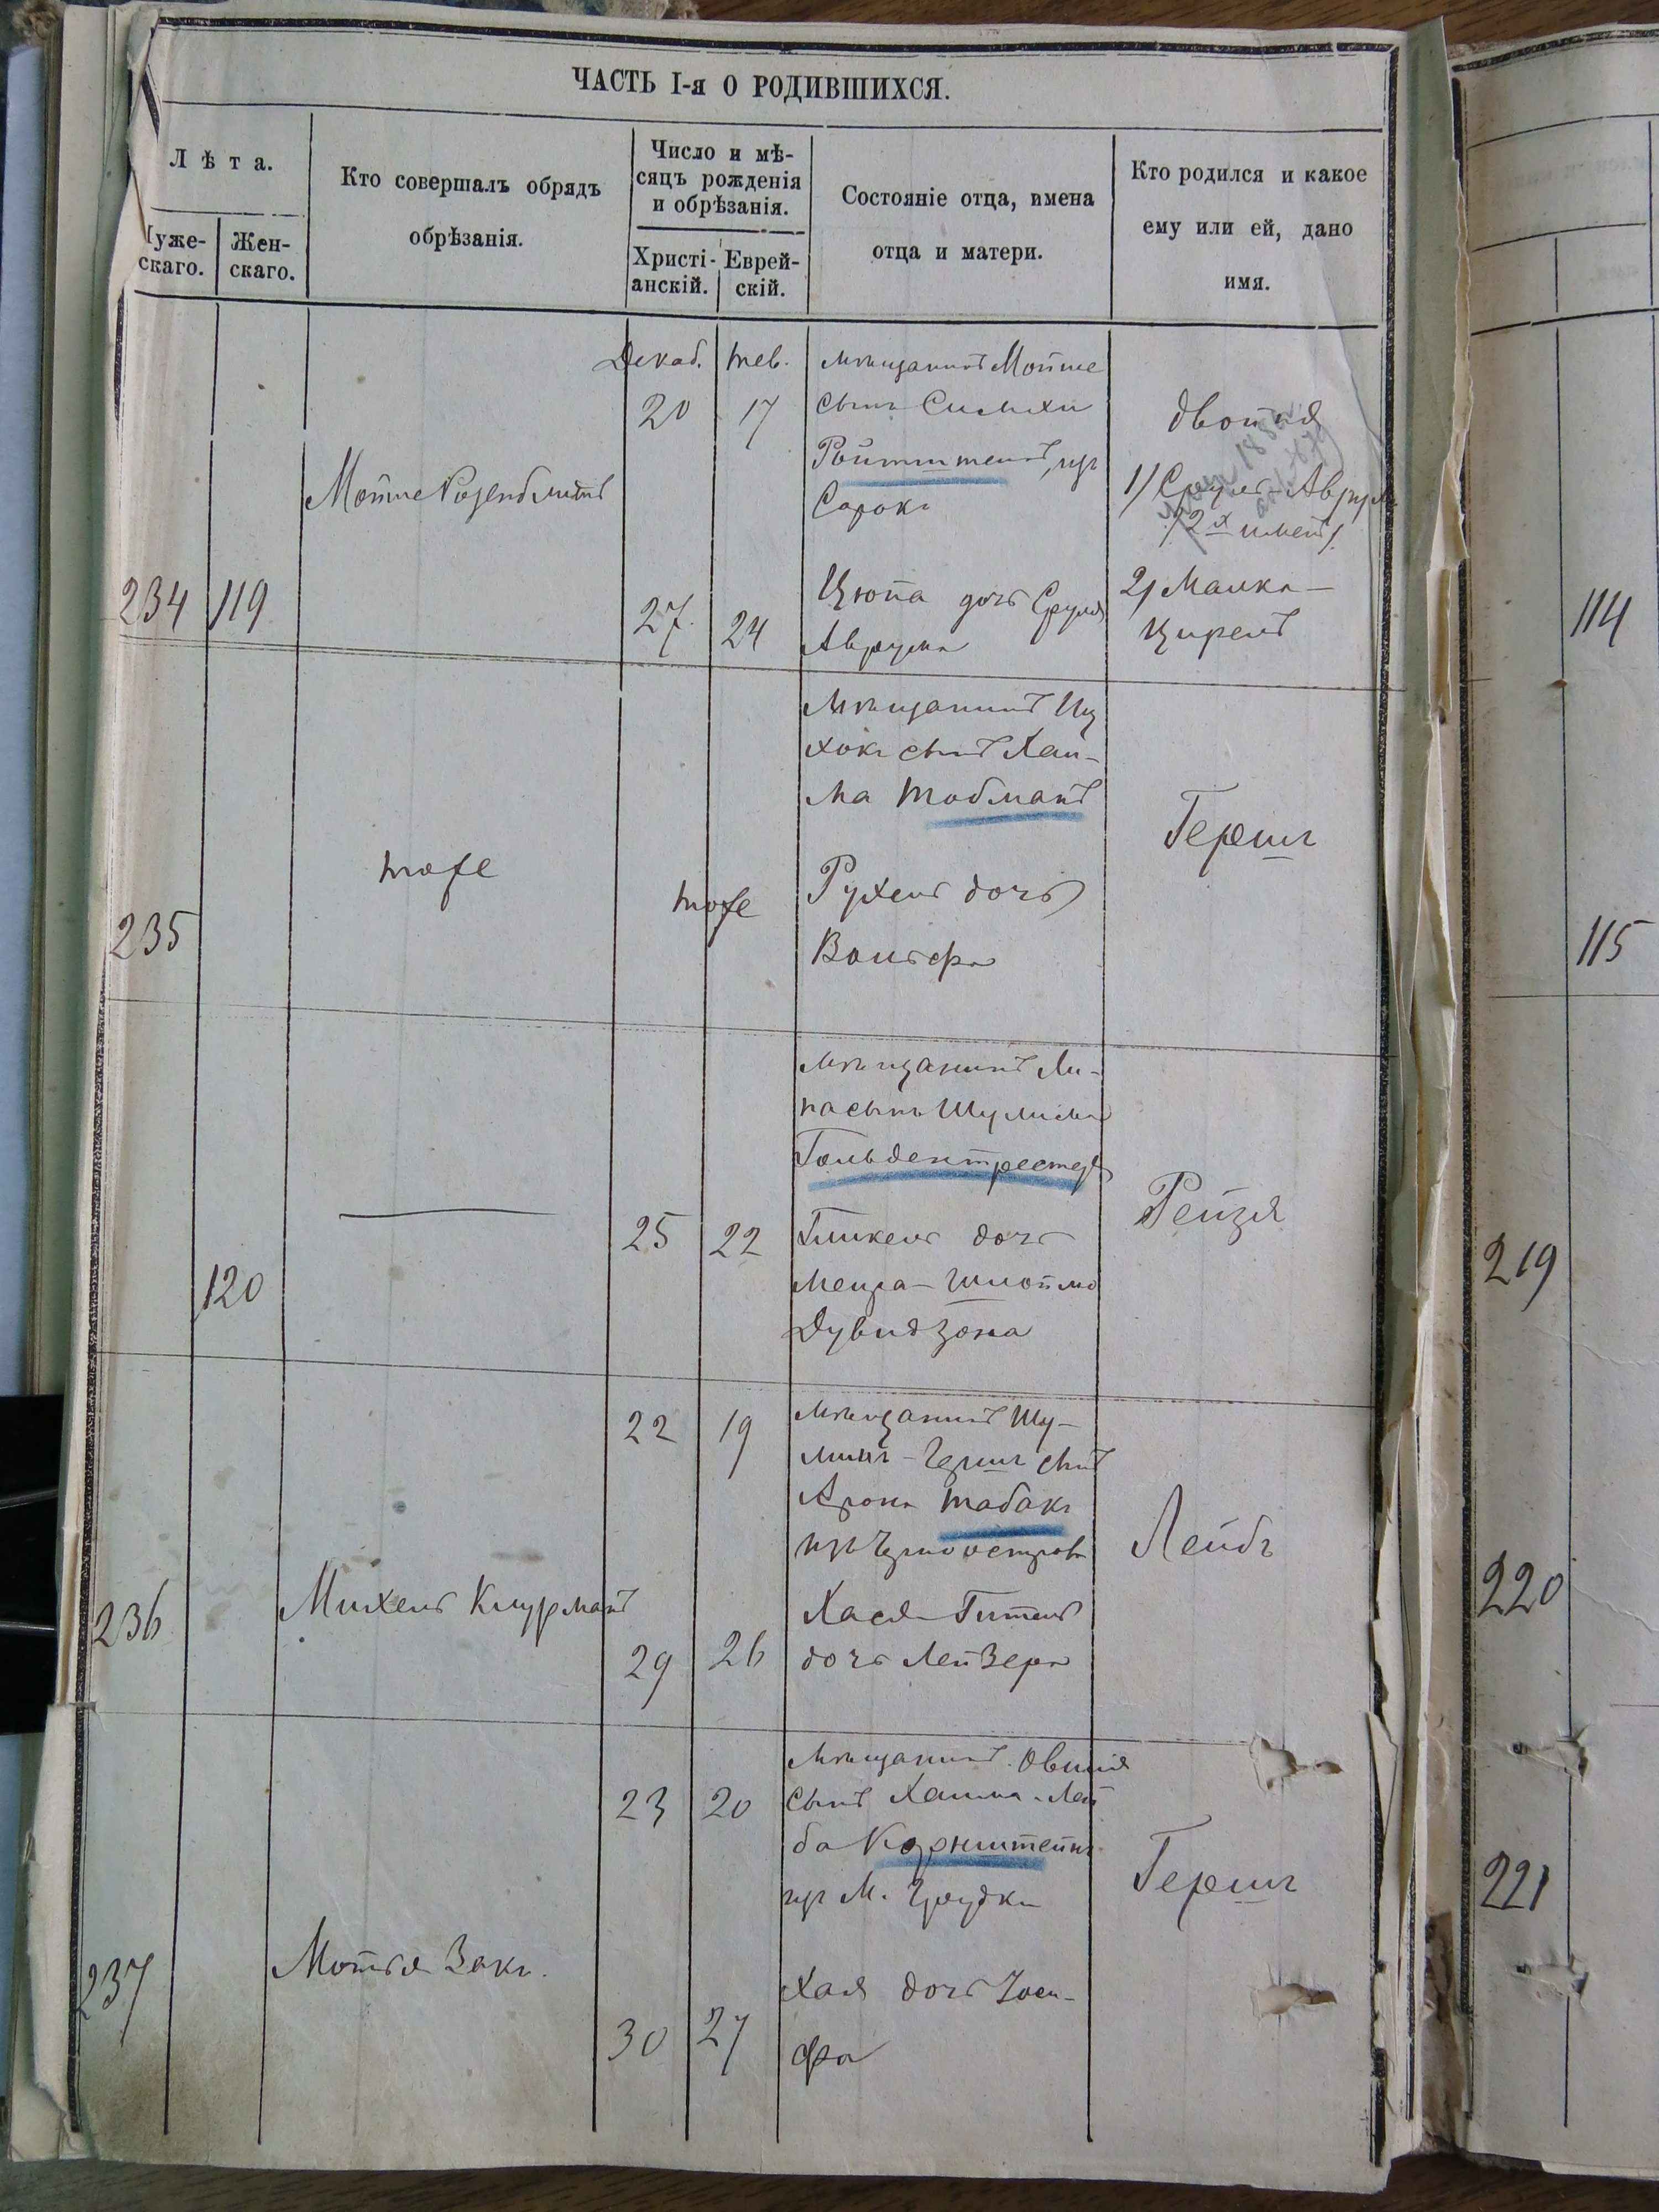 ЧАСТЬ I-я О РОДИВШИХСЯ.
Лѣта.
Муже-
скаго.
Жен-
скаго.
Кто совершалъ обрядъ
обрѣзанія.
Число и мѣ-
сяцъ рожденія
и обрѣзанія.
Христі-
анскій.
Еврей-
скій.
Состояніе отца, имена
отца и матери.
Кто родился и какое
ему или ей, дано
имя.
234
119
Мойше Розенблитъ
Декаб.
20
27.
тев.
17
24
мѣщанинъ Мойше
сынъ Симхи
Ройтштейнъ, изъ
Сорокъ
Цюпа дочь Сруля
Аврума
двойня
1) Сруль-Аврумъ
/2х именъ/.
2) Малка-
Цирель
235
тоже
тоже
мѣщанинъ Иц
хокъ сынъ Хаи-
ма Тобманъ
Рухель дочь
Вольфа
Гершъ
120
25
22
мѣщанинъ Ли-
па сынъ Шулима
Гольдентрестеръ
Гликель дочь
Меира-Шлойма
Дувидзона
Рейзя
236
Михель Клурманъ
22
29
19
26
мѣщанинъ Шу-
лимъ-Гершъ сынъ
Арона Табакъ
изъ Черноострова
Хася-Гитель
дочь Лейзера
Лейбъ
237
Мотья Закъ.
23
30
20
27
мѣщанинъ Овшія
сынъ Хаима-Лей
ба Корнштейнъ
изъ М. Грудки
Хая дочь Іоси-
фа
Гершъ
114
115
219
220
221